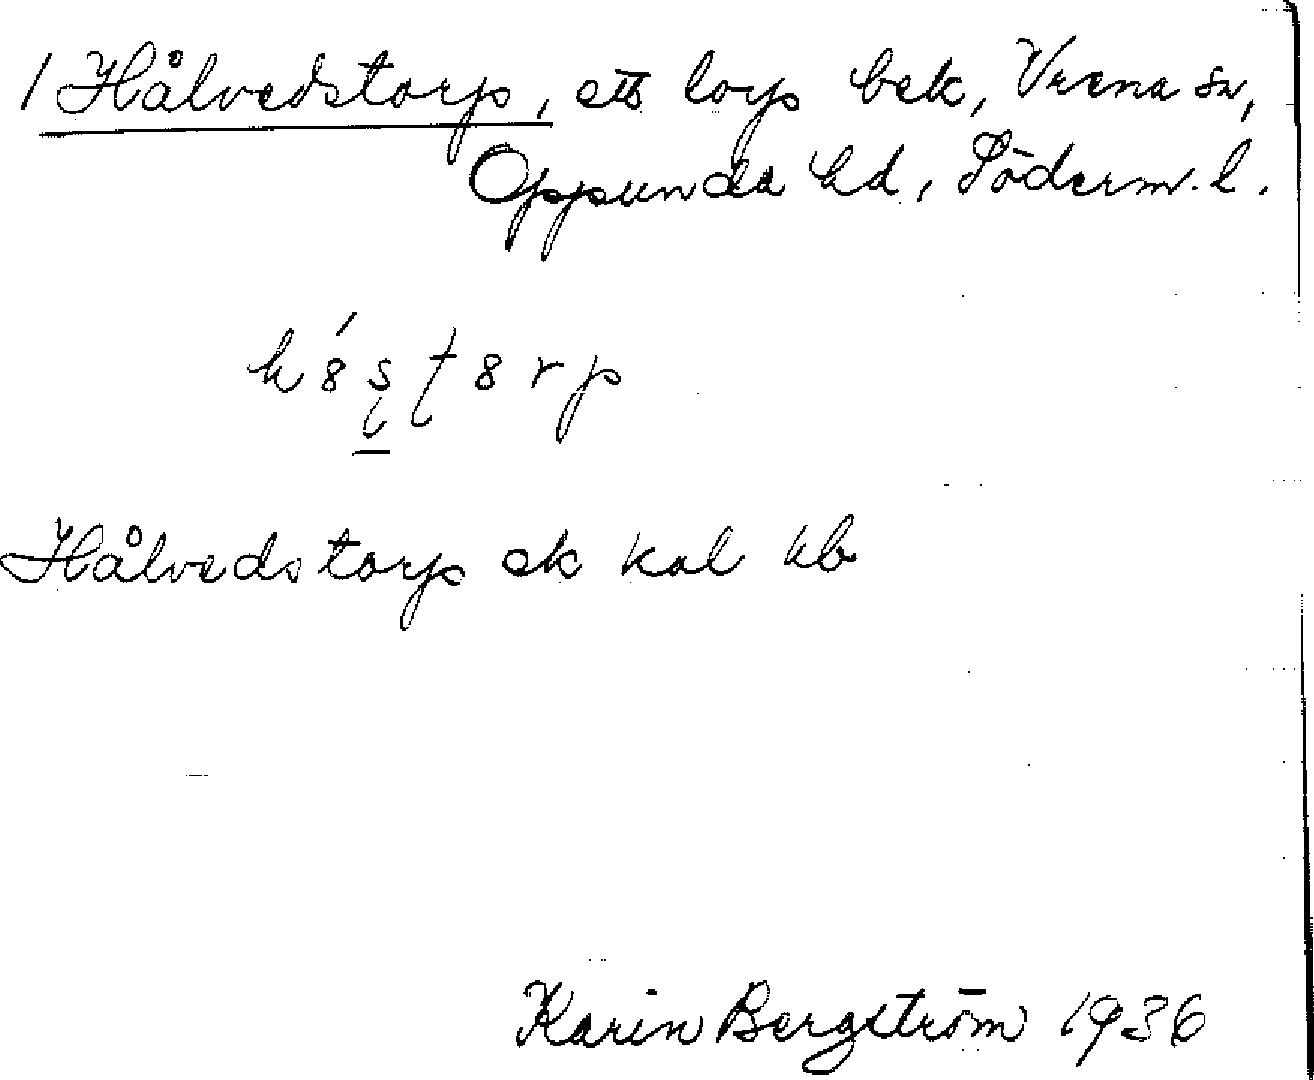 1 Hålvedstorp, ett torp bek, Vrena sn,
Oppunda hd, Söderm. l.
Hålvedstorp ek kal kb
Karin Bergström 1936